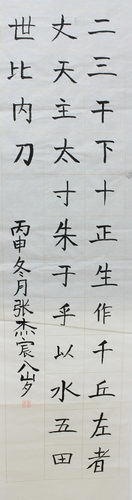 二三干下十正生作千丘左者
丈天主太寸朱于乎以水五田
世比内刀
丙申冬月张杰宸八岁